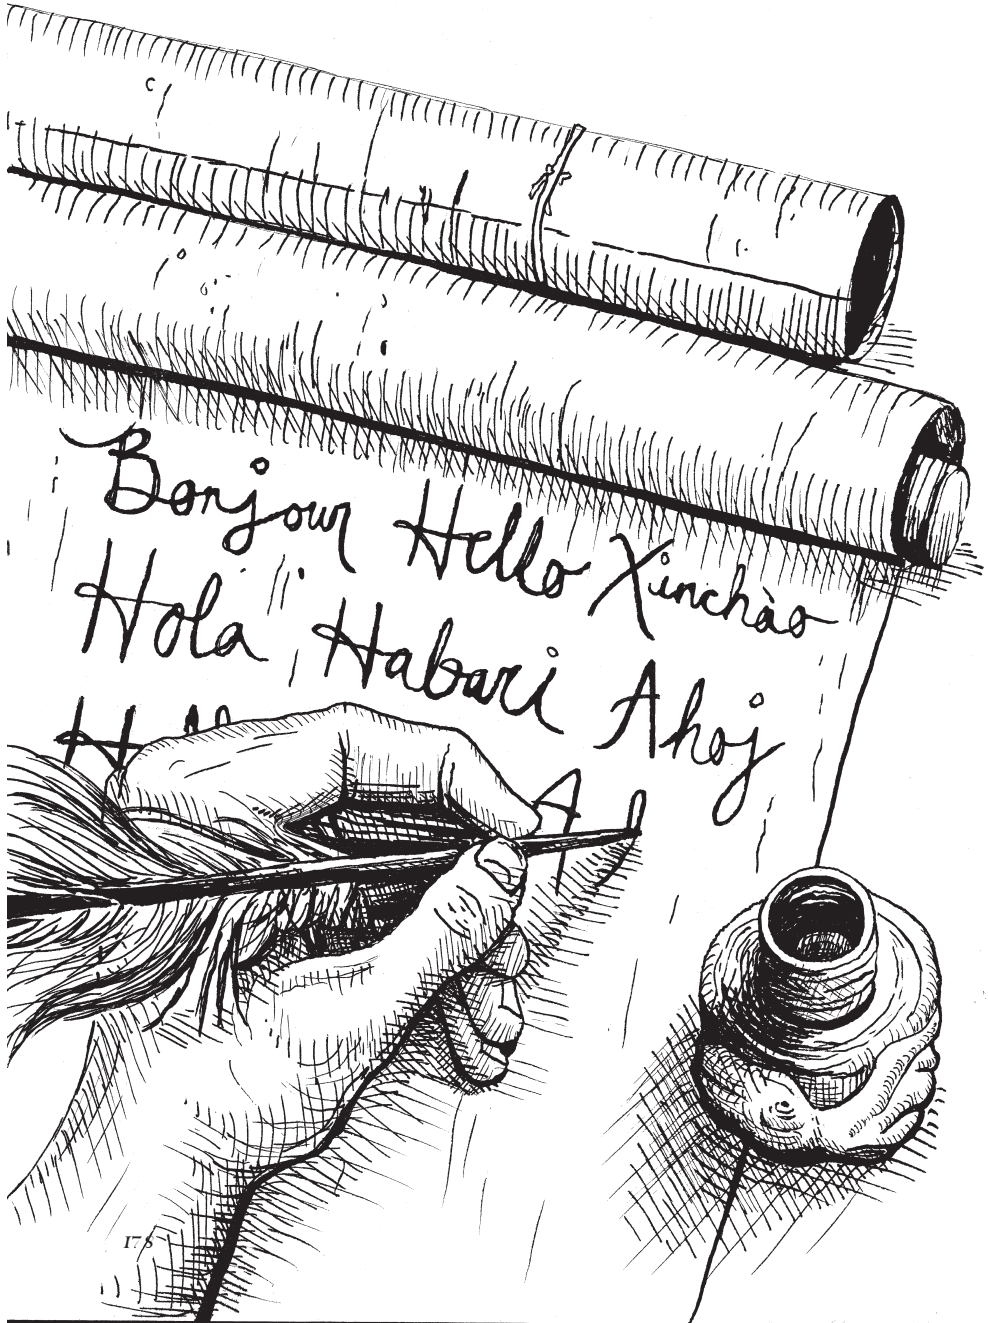 Bonjour Hello Xinchào
Hola Habari Ahoj
178